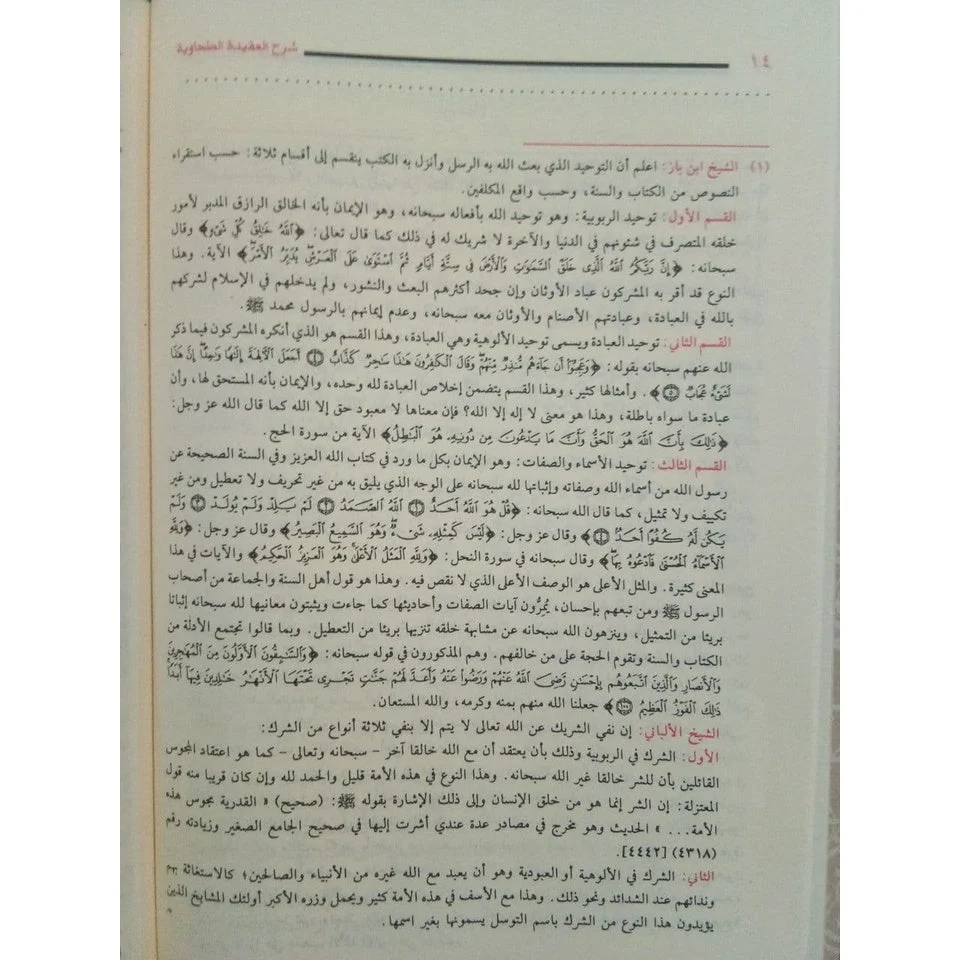 ١٤ شرح العقيدة الطحاوية
(١) الشيخ ابن باز: اعلم أن التوحيد الذي بعث الله به الرسل وأنزل به الكتب ينقسم إلى أقسام ثلاثة: حسب استقراء
النصوص من الكتاب والسنة، وحسب واقع المكلفين.
القسم الأول: توحيد الربوبية: وهو توحيد الله بأفعاله سبحانه، وهو الإيمان بأنه الخالق الرازق المدبر لأمور
خلقه المتصرف في شئونهم في الدنيا والآخرة لا شريك له في ذلك كما قال تعالى: ﴿اللَّهُ خَالِقُ كُلِّ شَيْءٍ﴾ وقال
سبحانه: ﴿إِنَّ رَبَّكُمُ اللَّهُ الَّذِي خَلَقَ السَّمَاوَاتِ وَالْأَرْضَ فِي سِتَّةِ أَيَّامٍ ثُمَّ اسْتَوَى عَلَى الْعَرْشِ يُدَبِّرُ الْأَمْرَ﴾ الآية. وهذا
النوع قد أقر به المشركون عباد الأوثان وإن جحد أكثرهم البعث والنشور، ولم يدخلهم في الإسلام لشركهم
بالله في العبادة، وعبادتهم الأصنام والأوثان معه سبحانه، وعدم إيمانهم بالرسول محمد ﷺ.
القسم الثاني: توحيد العبادة ويسمى توحيد الألوهية وهي العبادة، وهذا القسم هو الذي أنكره المشركون فيما ذكر
الله عنهم سبحانه بقوله: ﴿وَعَجِبُوا أَنْ جَاءَهُمْ مُنْذِرٌ مِنْهُمْ وَقَالَ الْكَافِرُونَ هَذَا سَاحِرٌ كَذَّابٌ ۝٤ أَجَعَلَ الْآلِهَةَ إِلَهًا وَاحِدًا إِنَّ هَذَا
لَشَيْءٌ عُجَابٌ ۝٥﴾. وأمثالها كثير، وهذا القسم يتضمن إخلاص العبادة لله وحده، والإيمان بأنه المستحق لها، وأن
عبادة ما سواه باطلة، وهذا هو معنى لا إله إلا الله؟ فإن معناها لا معبود حق إلا الله كما قال الله عز وجل:
﴿ذَلِكَ بِأَنَّ اللَّهَ هُوَ الْحَقُّ وَأَنَّ مَا يَدْعُونَ مِنْ دُونِهِ هُوَ الْبَاطِلُ﴾ الآية من سورة الحج.
القسم الثالث: توحيد الأسماء والصفات: وهو الإيمان بكل ما ورد في كتاب الله العزيز وفي السنة الصحيحة عن
رسول الله من أسماء الله وصفاته وإثباتها لله سبحانه على الوجه الذي يليق به من غير تحريف ولا تعطيل ومن غير
تكييف ولا تمثيل، كما قال الله سبحانه: ﴿قُلْ هُوَ اللَّهُ أَحَدٌ ۝١ اللَّهُ الصَّمَدُ ۝٢ لَمْ يَلِدْ وَلَمْ يُولَدْ ۝٣ وَلَمْ
يَكُنْ لَهُ كُفُوًا أَحَدٌ ۝٤﴾ وقال عز وجل: ﴿لَيْسَ كَمِثْلِهِ شَيْءٌ وَهُوَ السَّمِيعُ الْبَصِيرُ﴾ وقال عز وجل: ﴿وَلِلَّهِ
الْأَسْمَاءُ الْحُسْنَى فَادْعُوهُ بِهَا﴾ وقال سبحانه في سورة النحل: ﴿وَلِلَّهِ الْمَثَلُ الْأَعْلَى وَهُوَ الْعَزِيزُ الْحَكِيمُ﴾ والآيات في هذا
المعنى كثيرة. والمثل الأعلى هو الوصف الأعلى الذي لا نقص فيه. وهذا هو قول أهل السنة والجماعة من أصحاب
الرسول ﷺ ومن تبعهم بإحسان، يُمرُّون آيات الصفات وأحاديثها كما جاءت ويثبتون معانيها لله سبحانه إثباتا
بريئا من التمثيل، وينزهون الله سبحانه عن مشابهة خلقه تنزيها بريئا من التعطيل. وبما قالوا تجتمع الأدلة من
الكتاب والسنة وتقوم الحجة على من خالفهم. وهم المذكورون في قوله سبحانه: ﴿وَالسَّابِقُونَ الْأَوَّلُونَ مِنَ الْمُهَاجِرِينَ
وَالْأَنْصَارِ وَالَّذِينَ اتَّبَعُوهُمْ بِإِحْسَانٍ رَضِيَ اللَّهُ عَنْهُمْ وَرَضُوا عَنْهُ وَأَعَدَّ لَهُمْ جَنَّاتٍ تَجْرِي تَحْتَهَا الْأَنْهَارُ خَالِدِينَ فِيهَا أَبَدًا
ذَلِكَ الْفَوْزُ الْعَظِيمُ ۝١٠٠﴾ جعلنا الله منهم بمنه وكرمه، والله المستعان.
الشيخ الألباني: إن نفي الشريك عن الله تعالى لا يتم إلا بنفي ثلاثة أنواع من الشرك:
الأول: الشرك في الربوبية وذلك بأن يعتقد أن مع الله خالقا آخر - سبحانه وتعالى - كما هو اعتقاد المجوس
القائلين بأن للشر خالقا غير الله سبحانه. وهذا النوع في هذه الأمة قليل والحمد لله وإن كان قريبا منه قول
المعتزلة: إن الشر إنما هو من خلق الإنسان وإلى ذلك الإشارة بقوله ﷺ: (صحيح) « القدرية مجوس هذه
الأمة... » الحديث وهو مخرج في مصادر عدة عندي أشرت إليها في صحيح الجامع الصغير وزيادته رقم
(٤٣١٨) [٤٤٤٢].
الثاني: الشرك في الألوهية أو العبودية وهو أن يعبد مع الله غيره من الأنبياء والصالحين؛ كالاستغاثة بهم
وندائهم عند الشدائد ونحو ذلك. وهذا مع الأسف في هذه الأمة كثير ويحمل وزره الأكبر أولئك المشايخ الذين
يؤيدون هذا النوع من الشرك باسم التوسل يسمونها بغير اسمها.